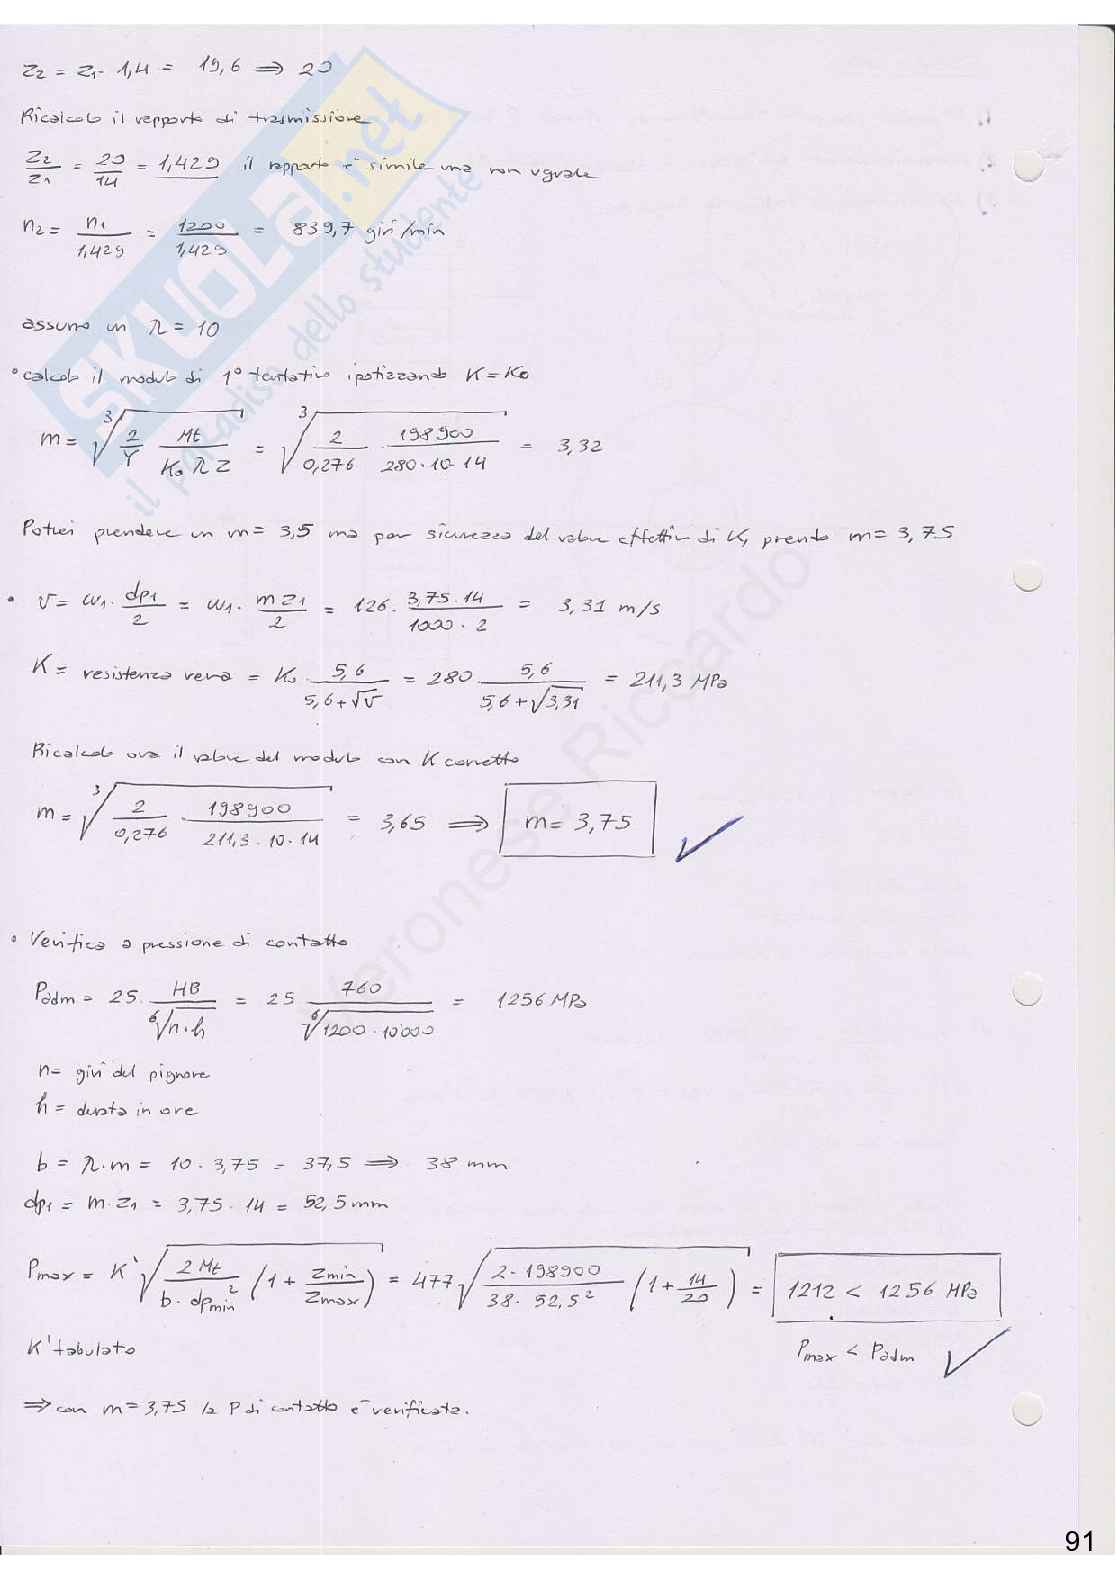 Z2 = Z1 · 1,4 = 19,6 ⇒ 20
Ricalcolo il rapporto di trasmissione
Z2/Z1 = 20/14 = 1,429 il rapporto è simile ma non uguale
n2 = n1/1,429 = 1200/1,429 = 839,7 giri/min
assumo un λ = 10
° calcolo il modulo di 1° tentativo ipotizzando K = K0
m = ∛(2/Y · Mt/(K0 λ Z)) = ∛(2/0,276 · 198900/(280·10·14)) = 3,32
Potrei prendere un m = 3,5 ma per sicurezza del valore effettivo di K, prendo m = 3,75
• v = ω1 · dp1/2 = ω1 · m z1/2 = 126 · 3,75·14/(1000·2) = 3,31 m/s
K = resistenza vera = K0 · 5,6/(5,6+√v) = 280 · 5,6/(5,6+√3,31) = 211,3 MPa
Ricalcolo ora il valore del modulo con K corretto
m = ∛(2/0,276 · 198900/(211,3·10·14)) = 3,65 ⇒ m = 3,75 ✓
• Verifica a pressione di contatto
Padm = 25 · HB/⁶√(n·h) = 25 760/⁶√(1200·10'000) = 1256 MPa
n = giri del pignone
h = durata in ore
b = λ·m = 10 · 3,75 = 37,5 ⇒ 38 mm
dp1 = m·Z1 = 3,75 · 14 = 52,5 mm
Pmax = K' √(2 Mt/(b · dpmin²) (1 + Zmin/Zmax)) = 477 √(2·198900/(38·52,5²) (1 + 14/20)) = 1212 < 1256 MPa
K' tabulato
Pmax < Padm ✓
⇒ con m = 3,75 la P di contatto è verificata.
SKUOLA.net
il paradiso dello studente
Veronese Riccardo
91